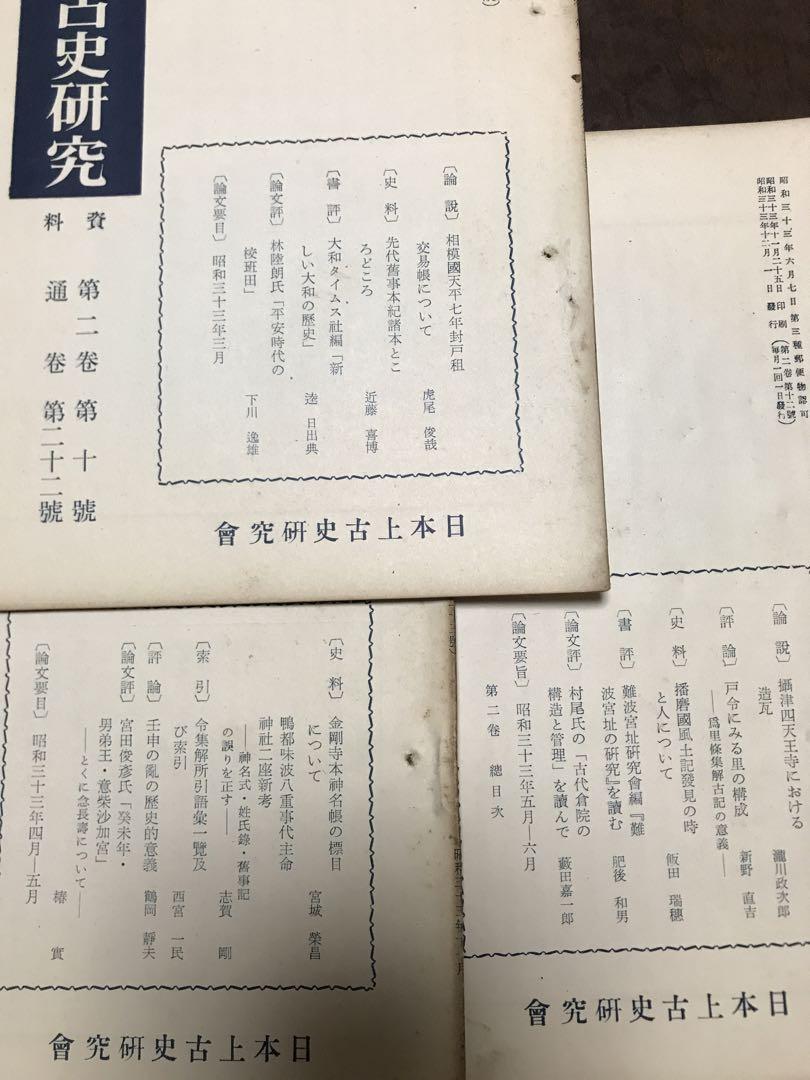 古史研究
資料
第二卷第十號
通卷第二十二號
〔論説〕相模國天平七年封戸租
交易帳について
虎尾俊哉
〔史料〕先代舊事本紀諸本とこ
ろどころ
近藤喜博
〔書評〕大和タイムス社編「新
しい大和の歴史」
逵日出典
〔論文評〕林陸朗氏「平安時代の
校班田」
下川逸雄
〔論文要目〕昭和三十三年三月
日本上古史研究會
昭和三十三年六月七日第三種郵便物認可
昭和三十三年十一月二十五日印刷
昭和三十三年十二月一日發行
(第二卷第十二號)
(毎月一回一日發行)
〔論説〕攝津四天王寺における
造瓦
瀧川政次郎
〔評論〕戸令にみる里の構成
――爲里條集解古記の意義――
新野直吉
〔史料〕播磨國風土記發見の時
と人について
飯田瑞穗
〔書評〕難波宮址研究會編『難
波宮址の研究』を讀む
肥後和男
〔論文評〕村尾氏の「古代倉院の
構造と管理」を讀んで
藪田嘉一郎
〔論文要旨〕昭和三十三年五月―六月
第二卷總目次
日本上古史研究會
〔史料〕金剛寺本神名帳の標目
について
宮城榮昌
鴨都味波八重事代主命
神社二座新考
――神名式・姓氏錄・舊事記
の誤りを正す――
志賀剛
〔索引〕令集解所引語彙一覽及
び索引
西宮一民
〔評論〕壬申の亂の歴史的意義
鶴岡靜夫
〔論文評〕宮田俊彦氏「癸未年・
男弟王・意柴沙加宮」
――とくに念長壽について――
椿實
〔論文要目〕昭和三十三年四月―五月
日本上古史研究會